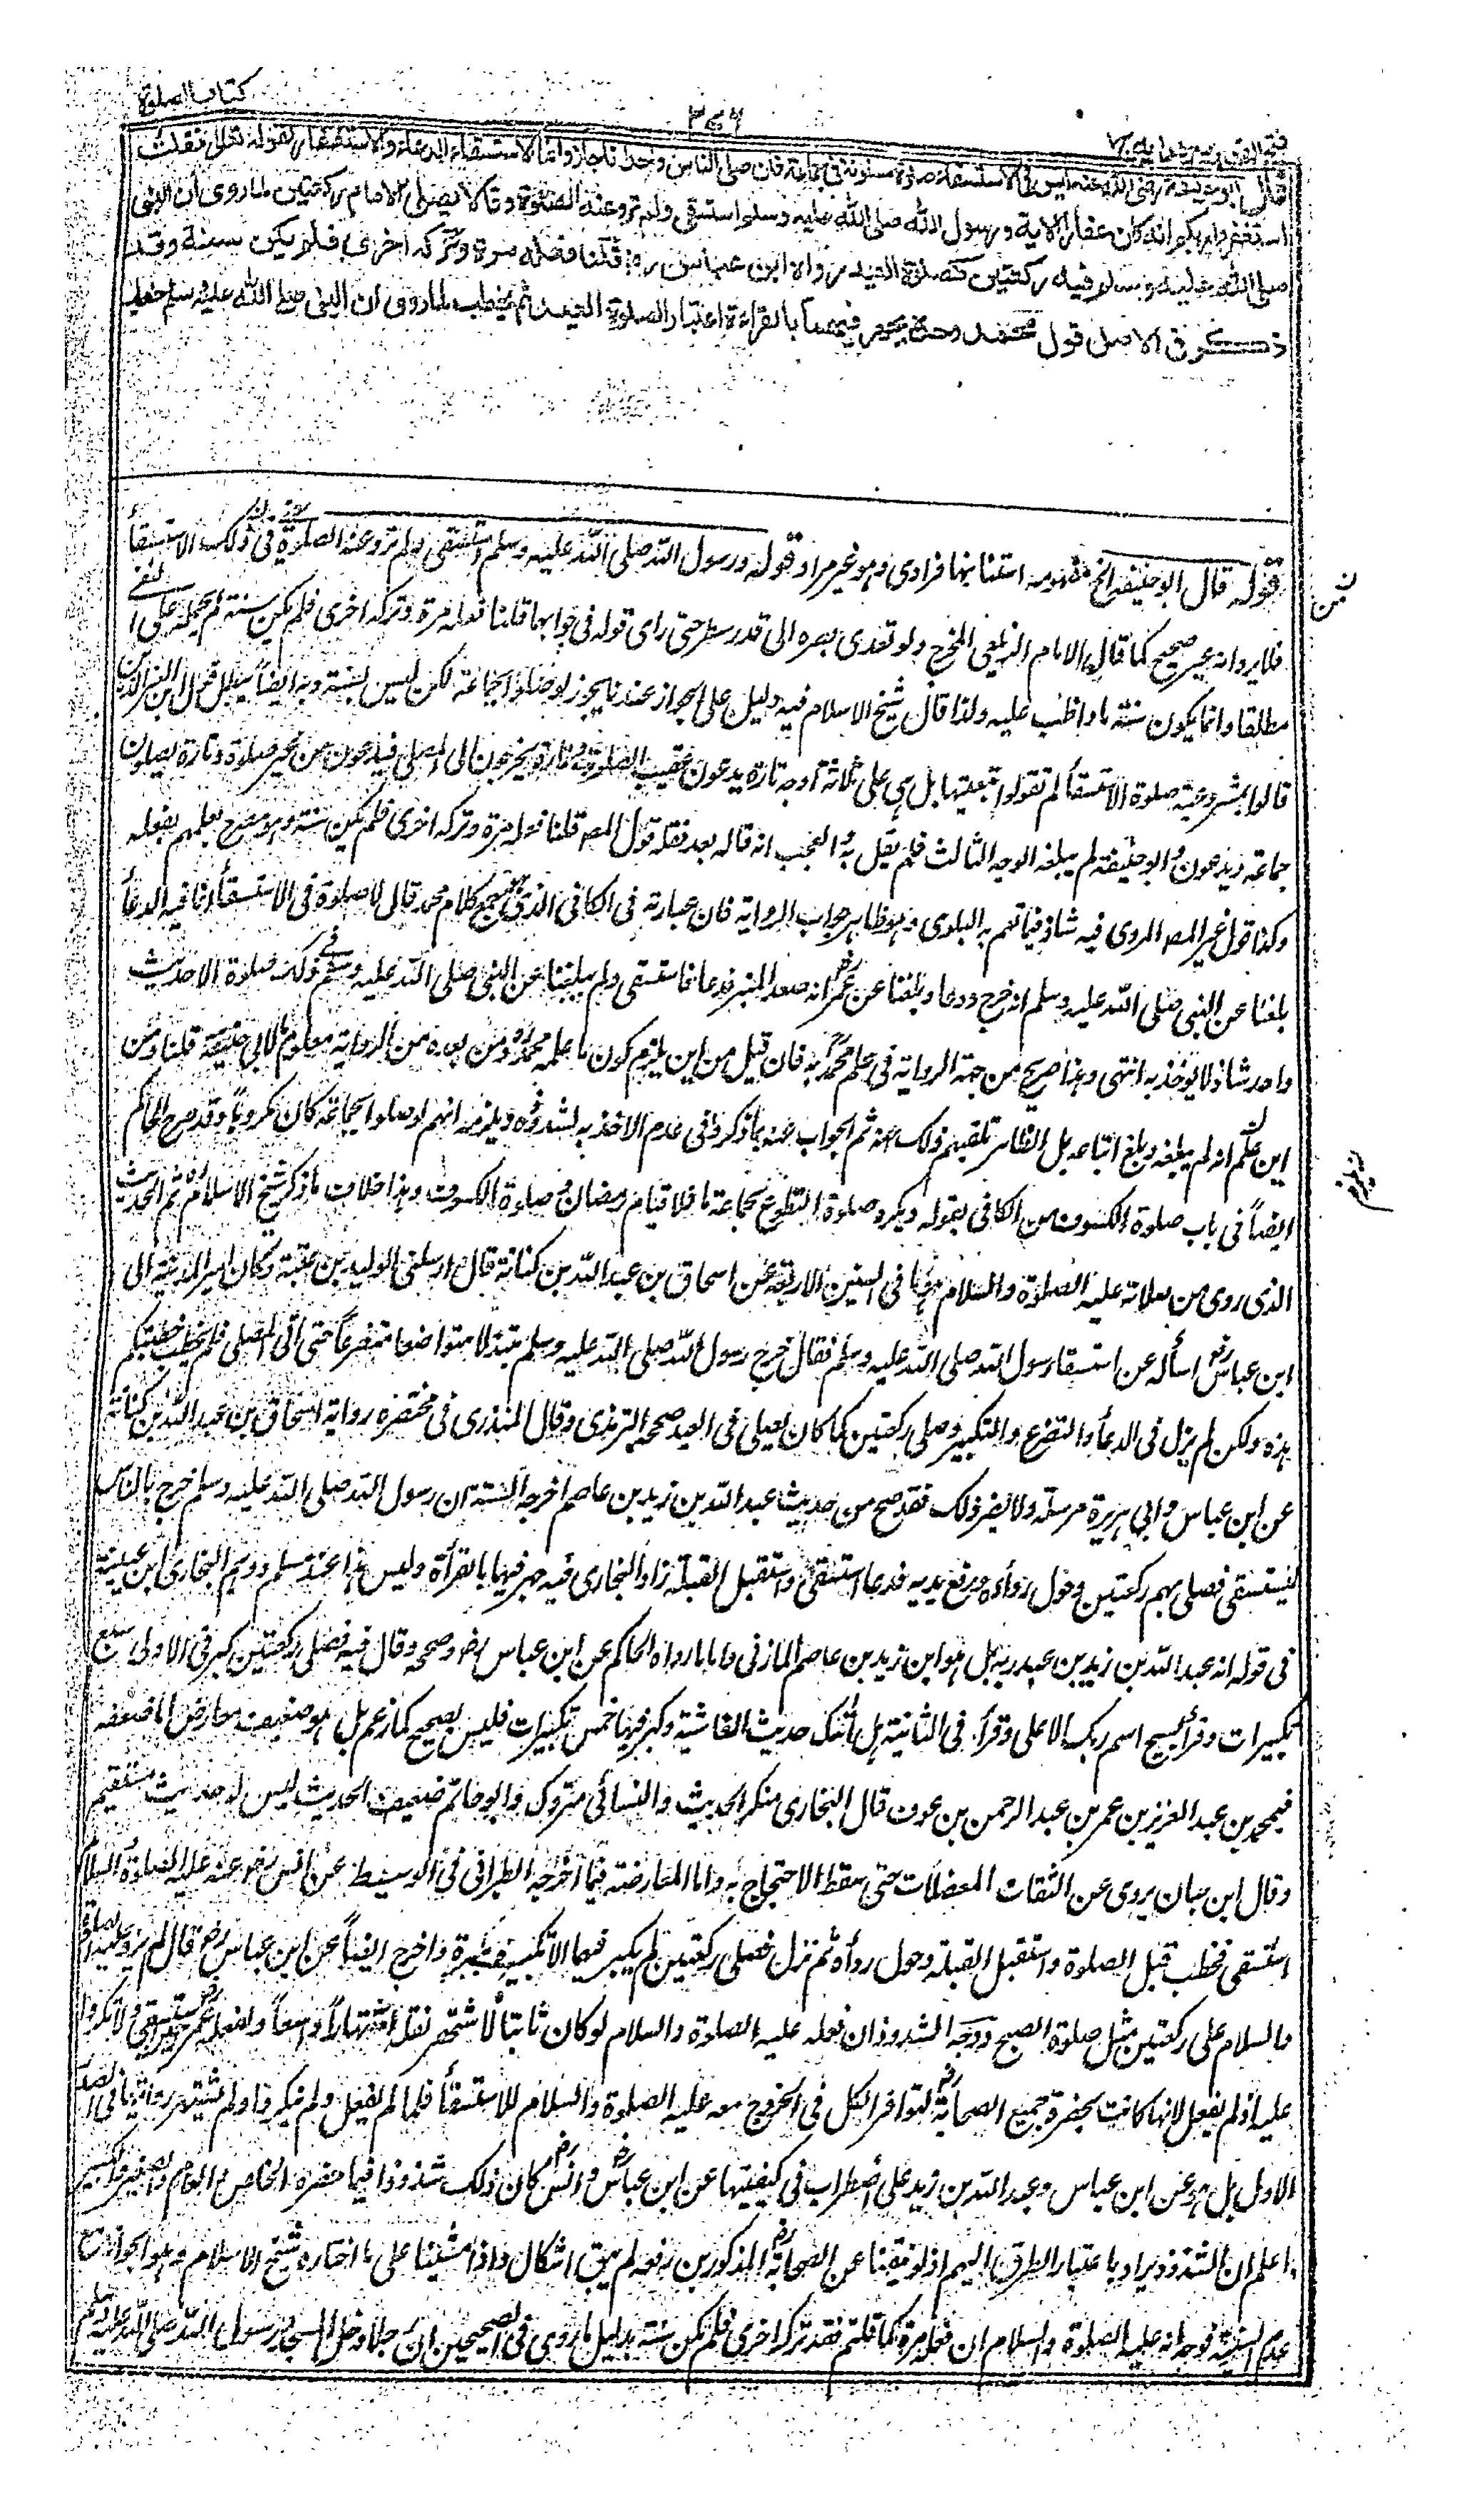 كتاب الصلوة
٣٤٦
فتح القدير مع هدايه ج
قال ابو حنيفة رضى الله عنه ليس فى الاستسقاء صلوة مسنونة فى جماعة فان صلى الناس وحدانا جاز وانما الاستسقاء الدعاء والاستغفار لقوله تعالى فقلت
استغفروا ربكم انه كان غفارا الاية ورسول الله صلى الله عليه وسلم استسقى ولم ترو عنه الصلوة وقالا يصلى الامام ركعتين لما روى ان النبى
صلى الله عليه وسلم صلى فيه ركعتين كصلوة العيد رواه ابن عباس رض قلنا فعله مرة وتركه اخرى فلم يكن سنة وقد
ذكر فى الاصل قول محمد وحده ويجهر فيهما بالقراءة اعتبارا بصلوة العيد ثم يخطب لما روى ان النبى صلى الله عليه وسلم خطب
قوله قال ابو حنيفة الخ مفهومه استنانها فرادى وهو غير مراد قوله ورسول الله صلى الله عليه وسلم استسقى ولم ترو عنه الصلوة فى ذلك الاستسقأ
فلا يرد انه غير صحيح كما قال الامام الزيلعى المخرج ولو تعدى بصره الى قدر سطر حتى راى قوله فى جوابها قلنا فعله مرة وتركه اخرى فلم يكن سنة لم يحمله على النفى
مطلقا وانما يكون سنة ما واظب عليه ولذا قال شيخ الاسلام فيه دليل على الجواز عندنا يجوز لو صلوا بجماعة لكن ليس بسنة وبه ايضاً يبطل قول ابن العز الذين
قالوا بمشروعية صلوة الاستسقأ لم تقولوا بتعينها بل هى على ثلاثة اوجه تارة يدعون عقيب الصلوة وتارة يخرجون الى المصلى فيدعون من غير صلوة وتارة يصلون
جماعة ويدعون وابو حنيفة لم يبلغه الوجه الثالث فلم يقل به والعجب انه قاله بعد نقله قول المصـ قلنا فعله مرة وتركه اخرى فلم يكن سنة وهو مصرح بعلمهم بفعله
وكذا قول غير المصـ المروى فيه شاذ فيما تعم به البلوى وهو ظاهر جواب الرواية فان عبارته فى الكافى الذى هو جمع كلام محمد قال لا صلوة فى الاستسقأ انما فيه الدعأ
بلغنا عن النبى صلى الله عليه وسلم انه خرج ودعا وبلغنا عن عمر رض انه صعد المنبر فدعا فاستسقى ولم يبلغنا عن النبى صلى الله عليه وسلم فى ذلك صلوة الا حديث
واحد شاذ لا يوخذ به انتهى وهذا صريح من جهة الرواية فى علم محمد به فان قيل من اين يلزم كون ما علمه محمد ومن بعده من الرواية معلوم لابى حنيفة قلنا ومن
اين علم انه لم يبلغه وبلغ اتباعه بل الظاهر تلقيهم ذلك عنه ثم الجواب عنه بما ذكر فى عدم الاخذ به لشذوذه ويلزمه انهم لو صلوا بجماعة كان مكروهاً وقد صرح الحاكم
ايضاً فى باب صلوة الكسوف من الكافى بقوله ويكره صلوة التطوع جماعة ما خلا قيام رمضان وصلوة الكسوف وهذا خلاف ما ذكر شيخ الاسلام ره ثم الحديث
الذى روى من صلاته عليه الصلوة والسلام هو ما فى السنن الاربعة عن اسحاق بن عبد الله بن كنانة قال ارسلنى الوليد بن عقبة وكان امير المدينة الى
ابن عباس رض اسأله عن استسقا رسول الله صلى الله عليه وسلم فقال خرج رسول الله صلى الله عليه وسلم متبذلا متواضعا متضرعاً حتى اتى المصلى فلم يخطب خطبتكم
هذه ولكن لم يزل فى الدعأ والتضرع والتكبير وصلى ركعتين كما كان يصلى فى العيد صححه الترمذى وقال المنذرى فى مختصره رواية اسحاق بن عبد الله بن كنانة
عن ابن عباس وابى هريرة مرسلة ولا يضر ذلك فقد صح من حديث عبد الله بن زيد بن عاصم اخرجه الستة ان رسول الله صلى الله عليه وسلم خرج بالناس
ليستسقى فصلى بهم ركعتين وحول رداءه ورفع يديه فدعا استسقى واستقبل القبلة زاد البخارى فيه جهر فيهما بالقرأة وليس هذا عند مسلم ووهم البخارى ابن عيينة
فى قوله انه عبد الله بن زيد بن عبد ربه بل هو ابن زيد بن عاصم المازنى واما ما رواه الحاكم عن ابن عباس رض وصححه وقال فيه فصلى ركعتين كبر فى الاولى سبع
تكبيرات وقرأ سبح اسم ربك الاعلى وقرأ فى الثانية هل أتىك حديث الغاشية وكبر فيها خمس تكبيرات فليس بصحيح كما زعم بل هو ضعيف معارض اما ضعفه
فبمحمد بن عبد العزيز بن عمر بن عبد الرحمن بن عوف قال البخارى منكر الحديث والنسائى متروك وابو حاتم ضعيف الحديث ليس له حديث مستقيم
وقال ابن حبان يروى عن الثقات المعضلات حتى سقط الاحتجاج به واما المعارضة فيما اخرجه الطبرانى فى الوسيط عن انس رض عنه عليه الصلوة والسلام
استسقى فخطب قبل الصلوة واستقبل القبلة وحول رداءه ثم نزل فصلى ركعتين لم يكبر فيهما الا تكبيرة تكبيرة واخرج ايضاً عن ابن عباس رض قال لم يزد عليه الصلوة
والسلام على ركعتين مثل صلوة الصبح ووجه الشذوذ ان فعله عليه الصلوة والسلام لو كان ثابتا لاشتهر نقله اشتهاراً واسعاً ولفعله عمر رض حين استسقى ولانكروا
عليه اذ لم يفعل لانها كانت بحضرة جميع الصحابة رض لتوافر الكل فى الخروج معه عليه الصلوة والسلام للاستسقأ فلما لم يفعل ولم ينكروا ولم تشتهر روايتها فى الصدر
الاول بل هو عن ابن عباس وعبد الله بن زيد على اضطراب فى كيفيتها عن ابن عباس رض وانس رض كان ذلك شذوذا فيما حضره الخاص والعام والصغير والكبير
واعلم ان الشذوذ يراد باعتبار الطرق اليهم اذ لو تيقنا عن الصحابة رض المذكورين رفعه لم يبق اشكال واذا مشينا على ما اختاره شيخ الاسلام وهو الجواز مع
عدم السنية فوجه انه عليه الصلوة والسلام ان فعله مرة كما قلتم فقد تركه اخرى فلم يكن سنة بدليل ما روى فى الصحيحين ان رجلا دخل المسجد ورسول الله صلى الله عليه وسلم